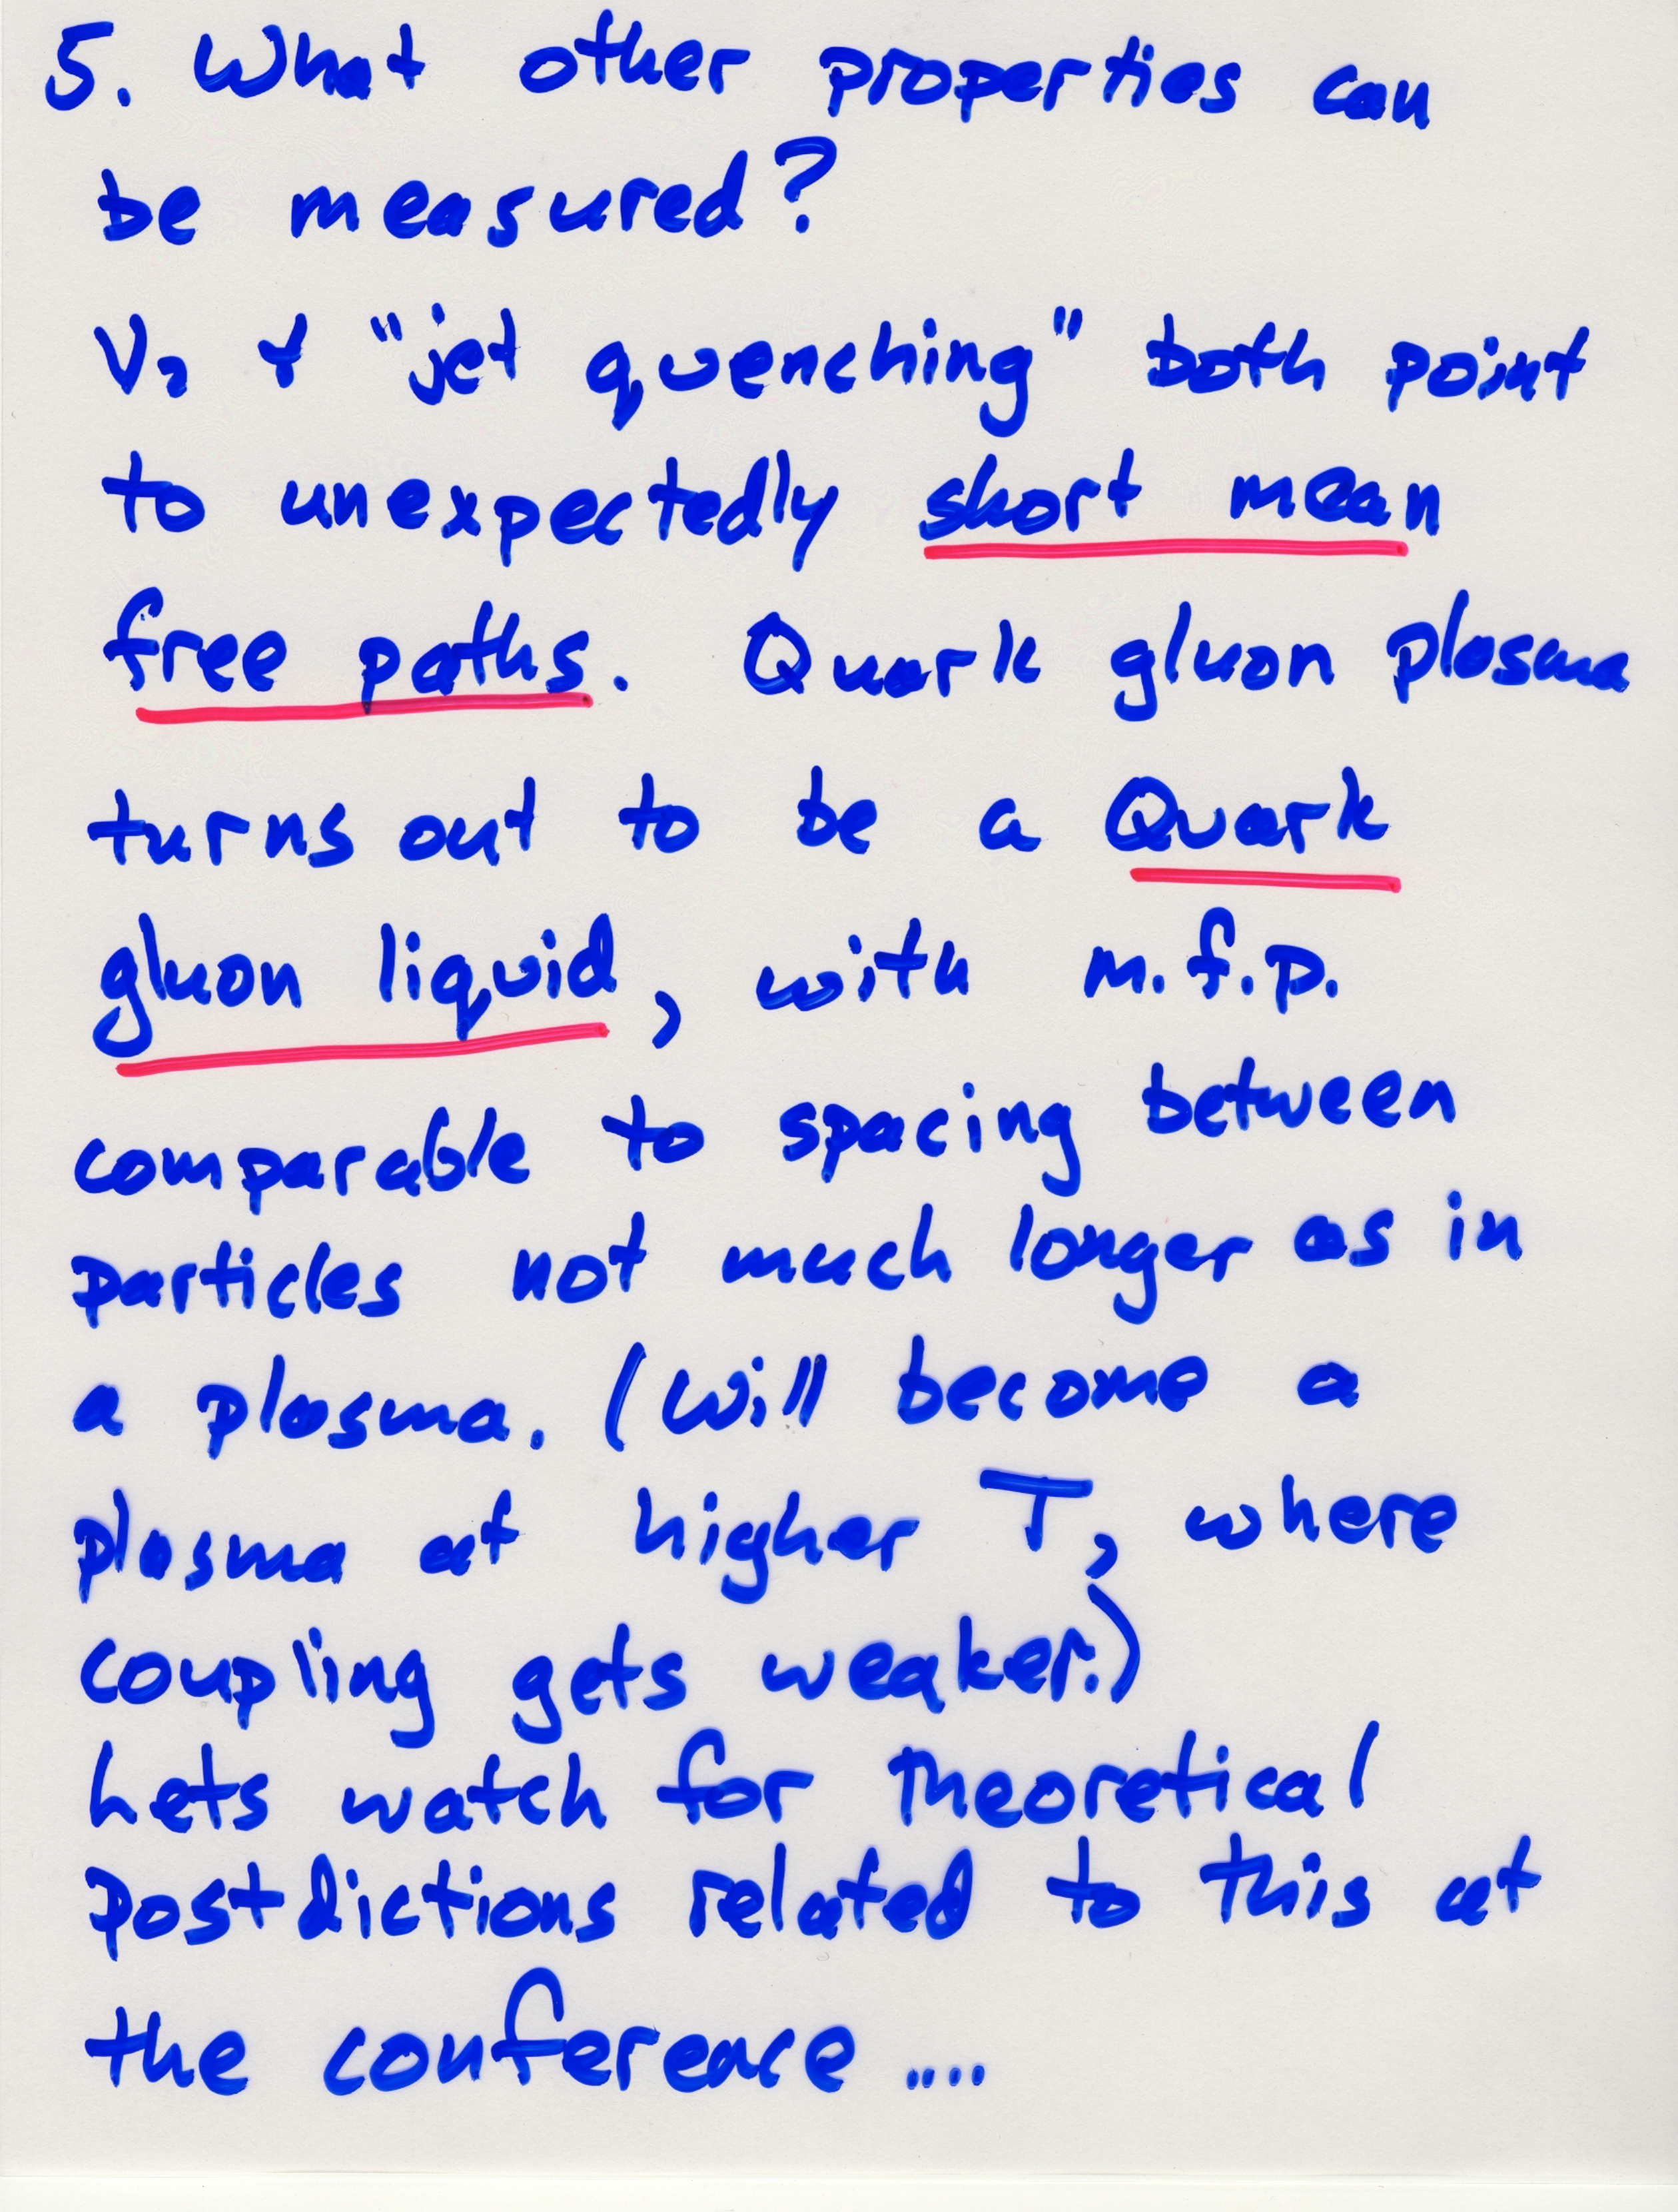 5. What other properties can
be measured?
V₂ & "jet quenching" both point
to unexpectedly short mean
free paths. Quark gluon plasma
turns out to be a Quark
gluon liquid, with m.f.p.
comparable to spacing between
particles not much longer as in
a plasma. (Will become a
plasma at higher T, where
coupling gets weaker.)
Lets watch for theoretical
postdictions related to this at
the conference ....